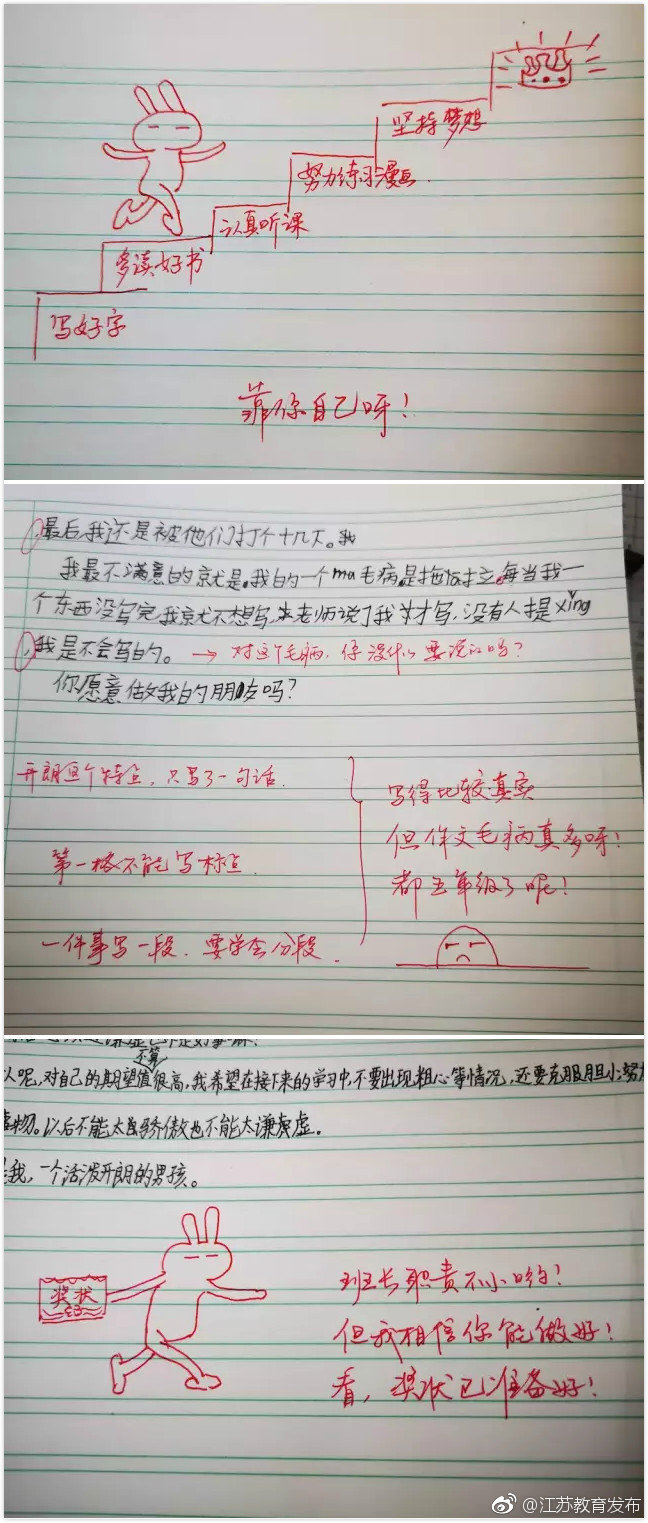 坚持梦想
努力练习漫画.
认真听课
多读好书
写好字
靠你自己呀！
最后,我还是被他们打个十几下。我
我最不满意的就是.我的一个ma毛病.是拖拉.每当我一
个东西没写完,我就不想写,老师说了我才写,没有人提xǐng
,我是不会写的。→对这个毛病,你没什么要说的吗?
你愿意做我的朋友吗？
开朗这个特点,只写了一句话.
第一格不能写标点.
一件事写一段.要学会分段.
写得比较真实
但作文毛病真多呀！
都五年级了呢！
不算
人呢,对自己的期望值很高,我希望在接下来的学习中,不要出现粗心等情况,还要克服胆小,努力
事物。以后不能太骄傲也不能太谦虚。
是我,一个活泼开朗的男孩。
奖状
班长职责不小哟！
但我相信你能做好！
看,奖状已准备好！
@江苏教育发布